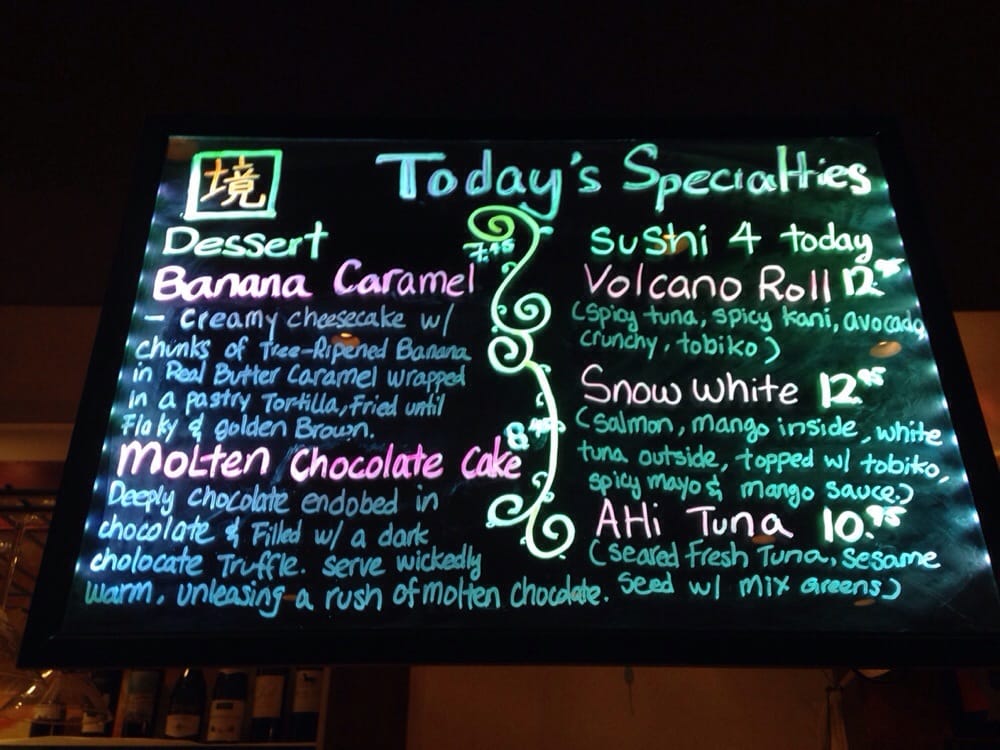 境
Today's Specialties
Dessert
7.45
Banana Caramel
- Creamy cheesecake w/
chunks of Tree-Ripened Banana
in Real Butter Caramel wrapped
in a pastry Tortilla, Fried until
Flaky & golden Brown.
8.45
Molten Chocolate Cake
Deeply chocolate endobed in
chocolate & Filled w/ a dark
cholocate Truffle. serve wickedly
warm, unleasing a rush of Molten Chocolate.
Sushi 4 today
Volcano Roll 12.95
(Spicy tuna, spicy kani, avocado,
crunchy, tobiko)
Snow white 12.95
(Salmon, mango inside, white
tuna outside, topped w/ tobiko,
spicy mayo & mango sauce.)
AHi Tuna 10.95
(seared Fresh Tuna, sesame
seed w/ mix Greens)